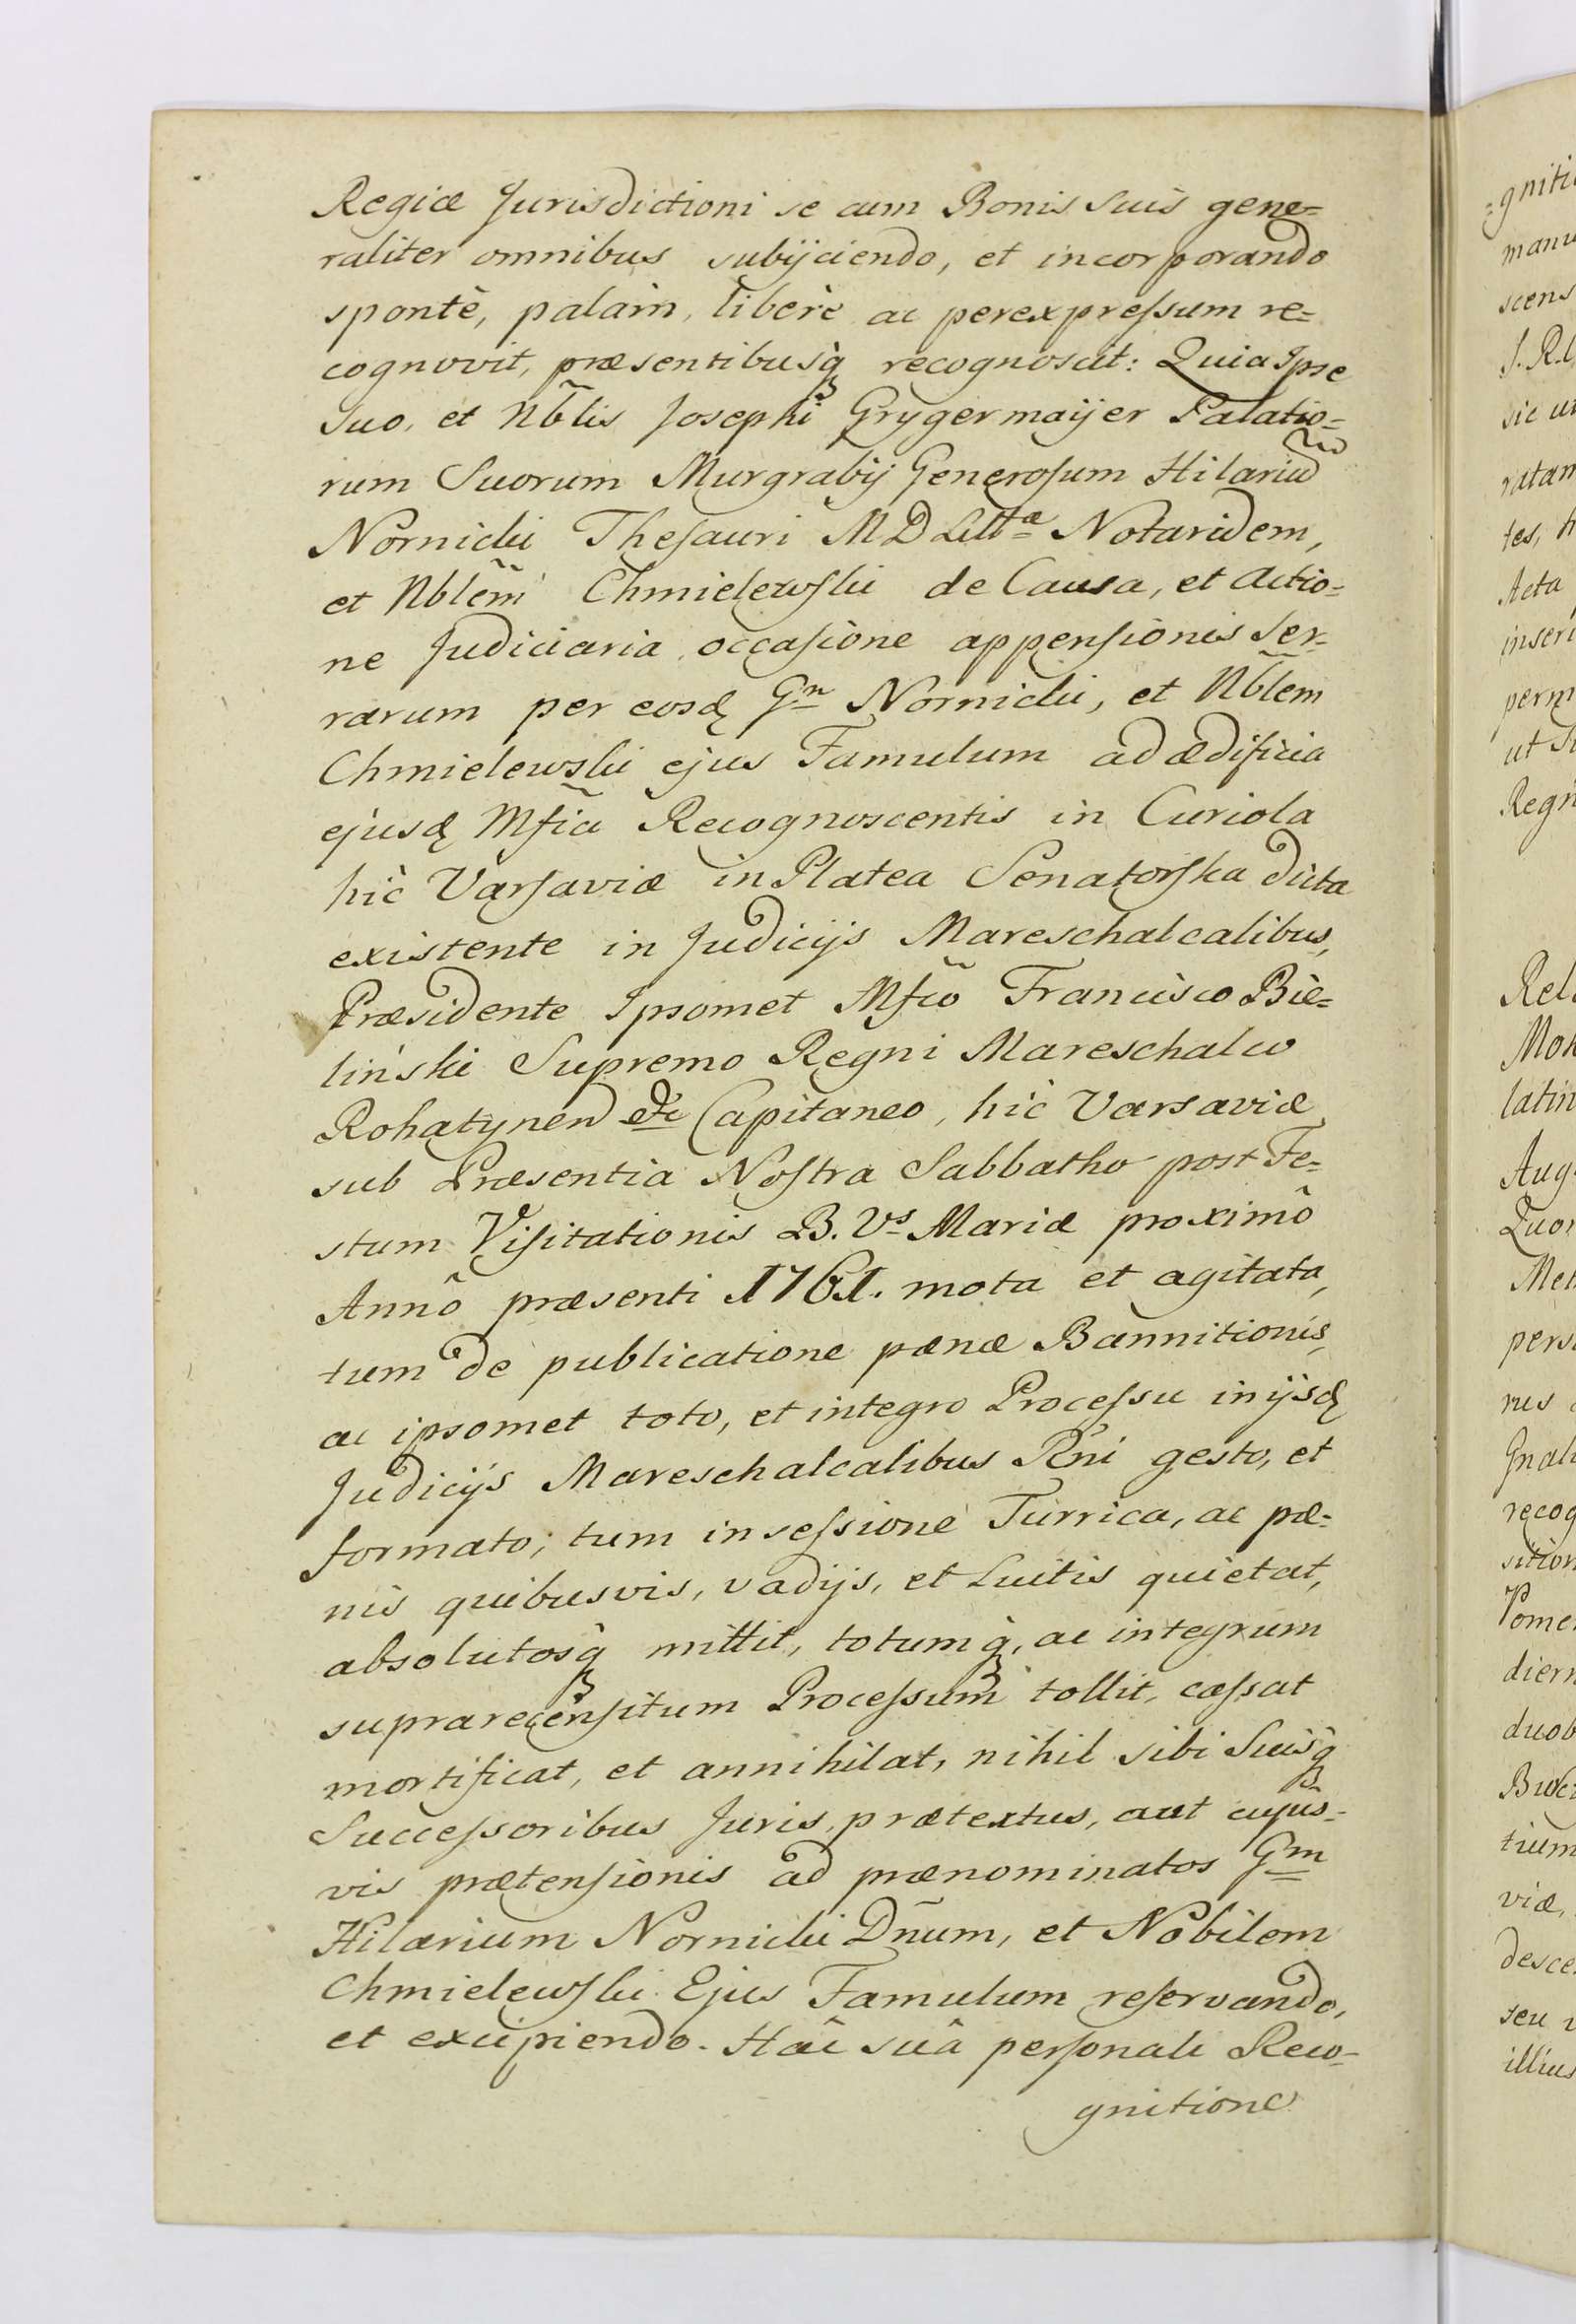 Regiæ Jurisdictioni se cum Bonis suis gene=
raliter omnibus subijciendo, et incorporando
spontè, palàm, liberè ac perexpreſsum re=
cognovit, præsentibusq́ꝫ recognoscit: Quia Ipse
suo, et Nb̃lis Josephi Grygermaÿer Palatio=
rum Suorum Murgrabÿ Generoſum Hilariũ
Nornicki Theſauri M D Littæ Notaridem,
et Nblẽm Chmielewſki de Causa, et Actio=
ne Judiciaria occaſione appenſionis Ser=
rarum per eosd. Gn Nornicki, et Nb̃lem
Chmielewski ejus Famulum ad ædificia
ejusd. Mfici Recognoscentis in Curiola
hic Varſaviæ in Platea Senatorſka dicta
existente in Judicijs Mareschalcalibus,
Præsidente Ipsomet Mfco Francisco Bie=
liński Supremo Regni Mareschalco
Rohatynen &c Capitaneo, hic Varsaviæ
sub Præsentia Noſtra Sabbatho post Fe=
stum Viſitationis B. Vs Mariæ proximô
Annô præsenti 1761. mota et agitata,
tum de publicatione pænæ Bannitionis,
ac ipsomet toto, et integro Proceſsu in ijsd.
Judicijs Mareschalcalibus R̃ni gesto, et
formato; tum in seſsione Turrica, ac pæ=
nis quibusvis, vadijs, et Luitis quietat,
absolutosq́ꝫ mittit, totumq́ꝫ, ac integrum
suprarecenſitum Proceſsum tollit, caſsat
mortificat, et annihilat, nihil sibi Suisq́ꝫ
Succeſsoribus Juris, prætextus, aut cujus=
vis prætenſionis ad prænominatos Gm
Hilarium Nornicki Dñum, et Nobilem
Chmielewſki Ejus Famulum reſervando,
et excipiendo. Hâc suâ perſonali Reco=
gnitione
=gniti
manu
scens
J. R.
sic
ratam
tes, h
Acta
inseri
perm
ut
Regn
Rel
Mok
latin
Aug
Quor
Met
pers
rus
Gnali
recog
sition
Pome
diern
duob
tium
viæ,
desce
seu
illius